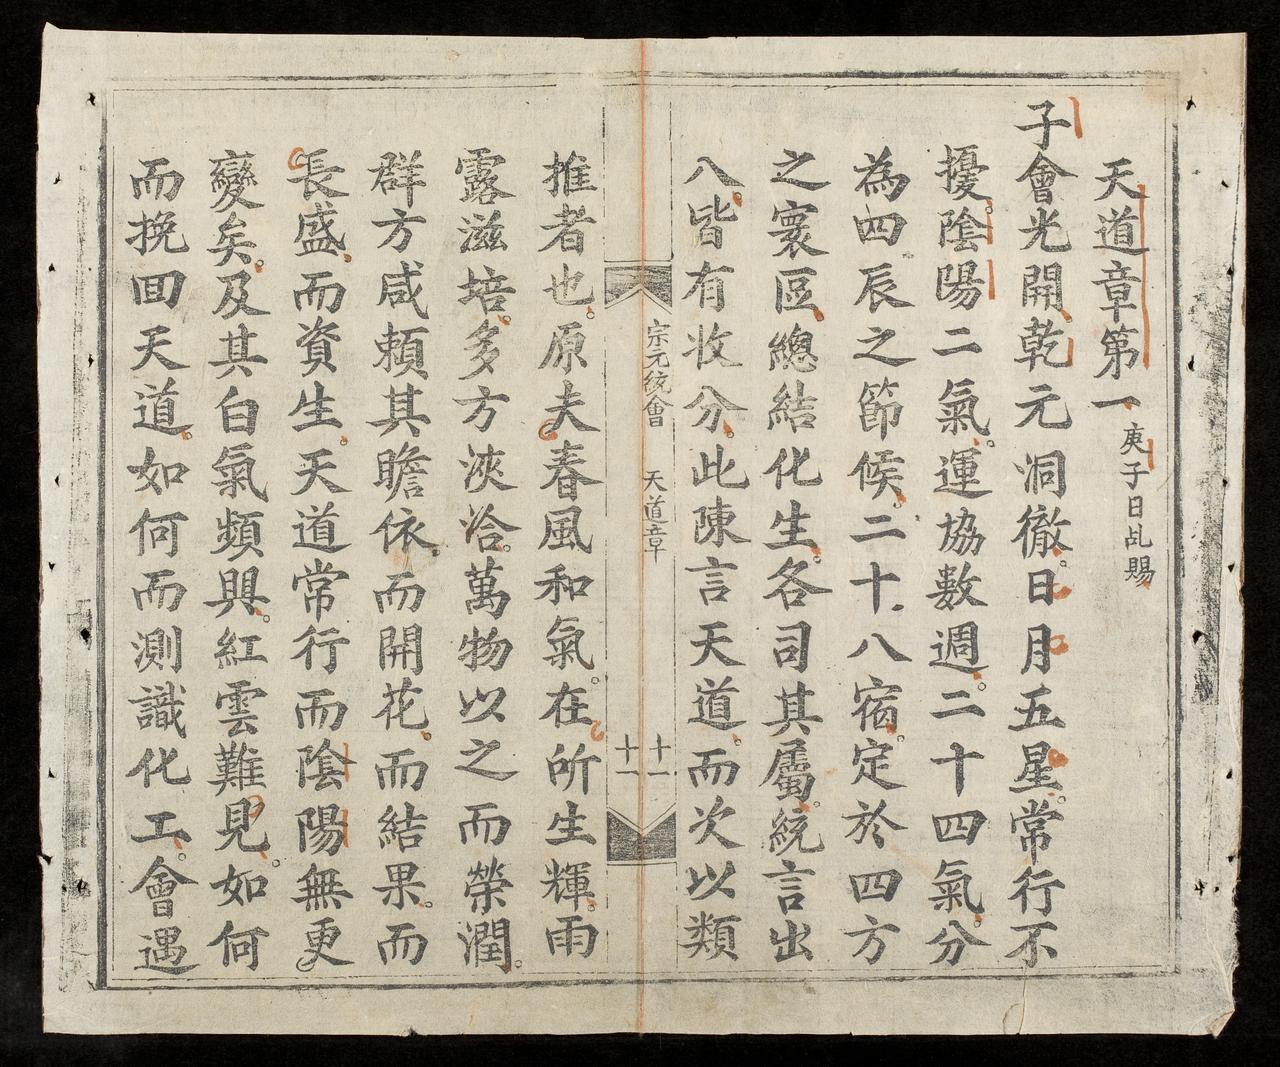 天道章第一 庚子日乩賜
子會光開乾元洞徹。日月五星。常行不
擾。陰陽二氣。運協數週。二十四氣。分
為四辰之節候。二十八宿。定於四方
之寰區。總結化生。各司其屬。統言出
八。皆有收分。此陳言天道。而次以類
宗元統會 天道章 十一 十一
推者也。原夫春風和氣。在所生輝。雨
露滋培。多方浹洽。萬物以之而榮潤。
群方咸賴其瞻依。而開花。而結果。而
長盛。而資生。天道常行而陰陽無更
變矣。及其白氣頻興。紅雲難見。如何
而挽回天道。如何而測識化工。會遇